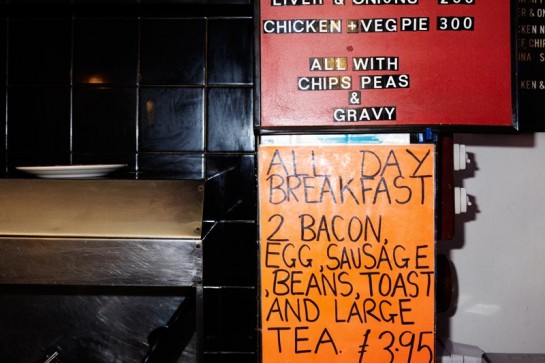 LIVER & ONIONS 200
CHICKEN + VEG PIE 300
ALL WITH
CHIPS PEAS
&
GRAVY
ALL DAY
BREAKFAST
2 BACON,
EGG, SAUSAGE
, BEANS, TOAST
AND LARGE
TEA. £3.95